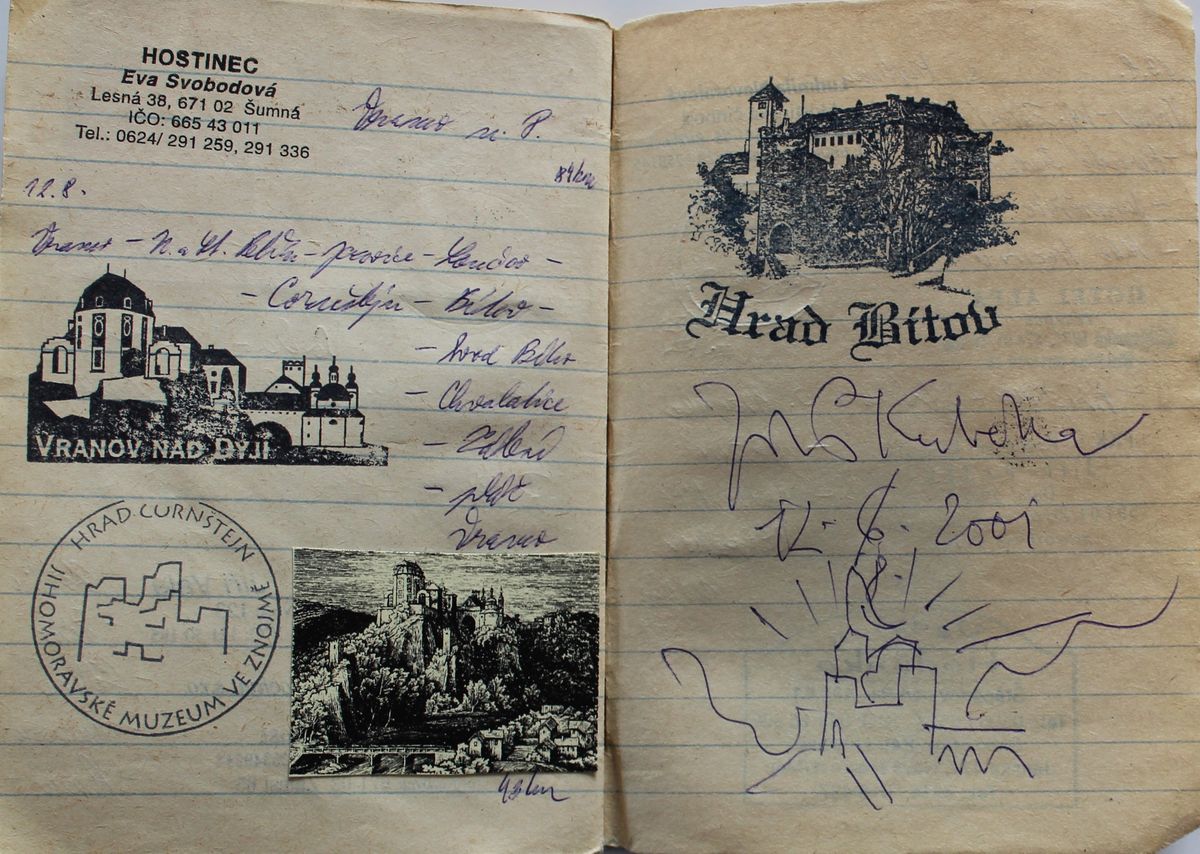 HOSTINEC
Eva Svobodová
Lesná 38, 671 02 Šumná
IČO: 665 43 011
Tel.: 0624/ 291 259, 291 336
Vranov n. D.
84km
12.8.
Vranov – – Lančov –
– Cornštejn – Bítov –
– hrad Bítov
– Chvalatice
– 
– pláž
Vranov
VRANOV NAD DYJÍ
HRAD CORNŠTEJN
JIHOMORAVSKÉ MUZEUM VE ZNOJMĚ
43km
Hrad Bítov
Kubeka
12. 8. 2001
8.